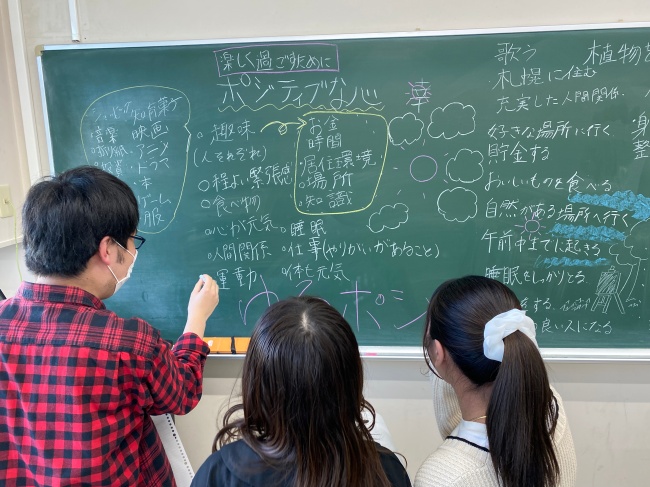 楽しく過ごすために
ポジティブな心
ショッピング 知育菓子
音楽 映画
折り紙 アニメ
ドラマ
本
ゲーム
服
趣味
(人それぞれ)
程よい緊張感
食べ物
心が元気
人間関係
運動
お金
時間
居住環境
場所
知識
睡眠
仕事(やりがいがあること)
体も元気
ゆるポジ
幸
歌う
札幌に住む
充実した人間関係
好きな場所に行く
貯金する
おいしいものを食べる
自然がある場所へ行く
午前中までに起きる
睡眠をしっかりとる
をする
良い人になる
植物を
身
整